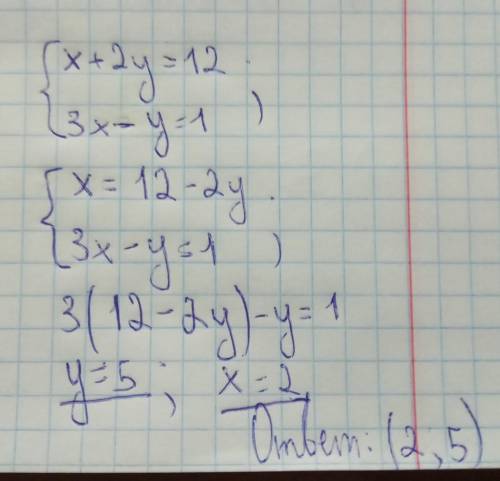 x + 2y = 12
3x - y = 1 ;
x = 12 - 2y
3x - y = 1 ;
3(12 - 2y) - y = 1
y = 5 ; x = 2
Ответ: (2; 5)